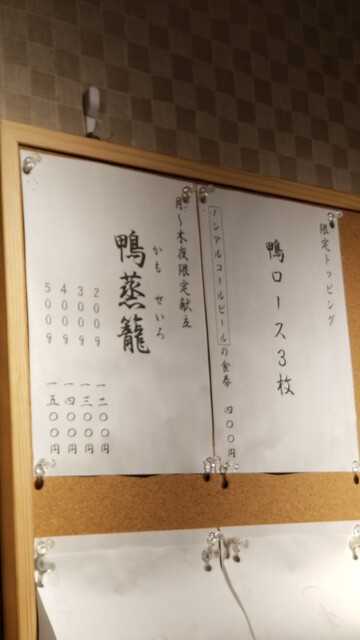 限定トッピング
鴨ロース3枚
ノンアルコールビールの食券 四〇〇円
月〜木夜限定献立
かも せいろ
鴨蒸籠
200g 一二〇〇円
300g 一三〇〇円
400g 一四〇〇円
500g 一五〇〇円